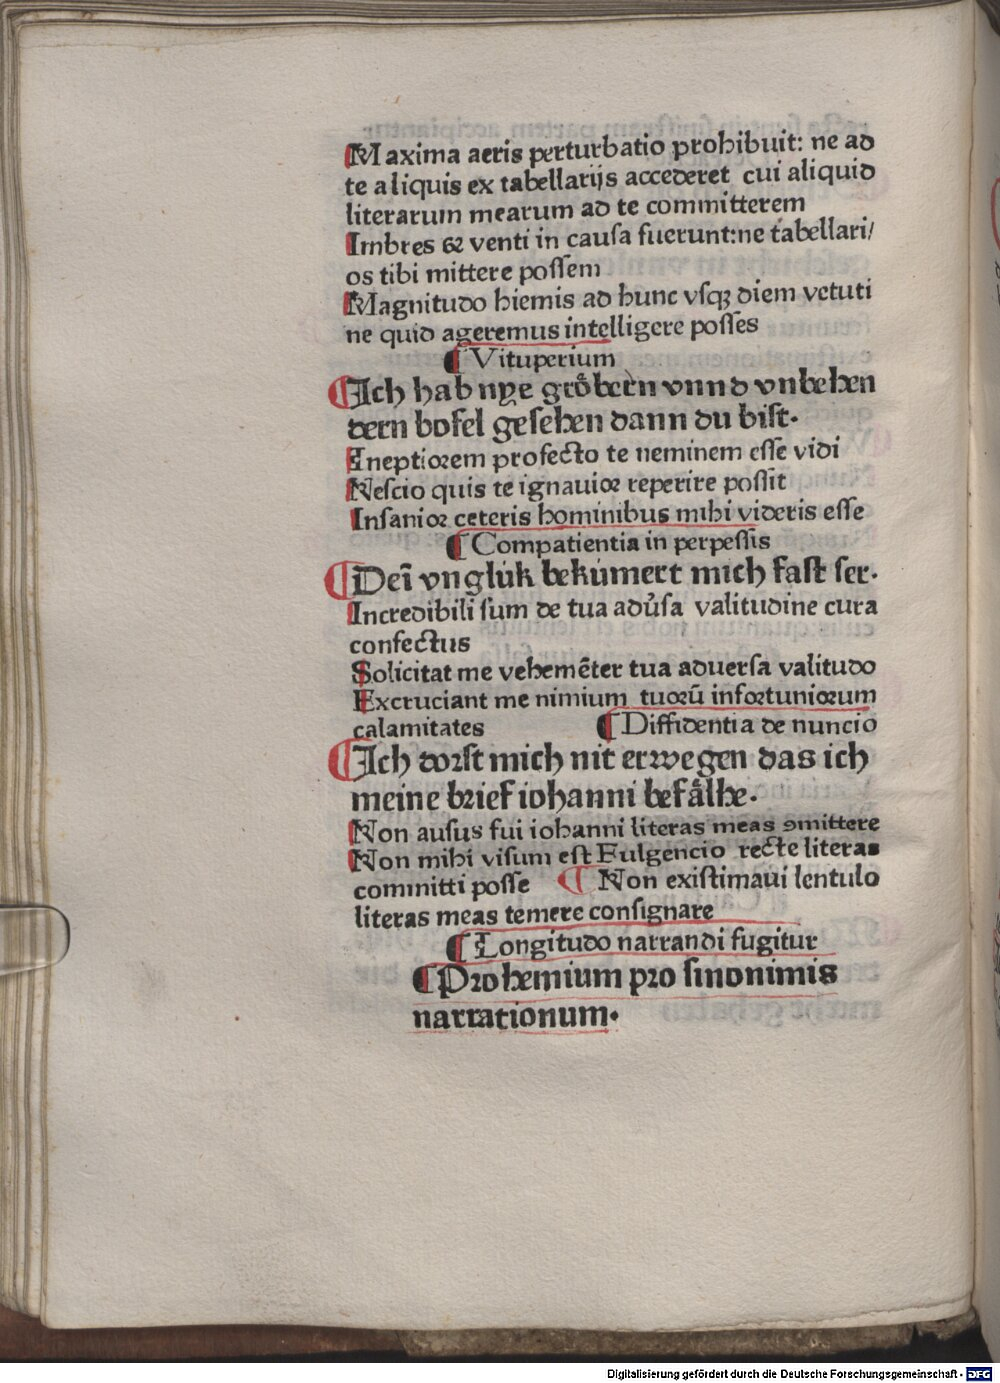 Maxima aeris perturbatio prohibuit: ne ad
te aliquis ex tabellarijs accederet cui aliquid
literarum mearum ad te committerem
Imbres & venti in causa fuerunt:ne tabellari/
os tibi mittere possem
Magnitudo hiemis ad hunc vsqꝫ diem vetuti
ne quid ageremus intelligere posses
¶ Vituperium
¶ Ich hab nye gröbern vnnd vnbehen
dern bofel gesehen dann du bist.
Ineptiorem profecto te neminem esse vidi
Nescio quis te ignauior reperire possit
Insanior ceteris hominibus mihi videris esse
¶ Compatientia in perpessis
¶ Deī vnglük bekümert mich fast ser.
Incredibili sum de tua adu͛sa valitudine cura
confectus
Solicitat me vehemēter tua aduersa valitudo
Excruciant me nimium tuorū infortuniorum
calamitates ¶ Diffidentia de nuncio
¶ Ich dorst mich nit erwegen das ich
meine brief iohanni befälhe.
Non ausus fui iohanni literas meas ꝯmittere
Non mihi visum est Fulgencio recte literas
committi posse ¶ Non existimaui lentulo
literas meas temere consignare
¶ Longitudo narrandi fugitur
¶ Prohemium pro sinonimis
narrationum.
Digitalisierung gefördert durch die Deutsche Forschungsgemeinschaft - DFG